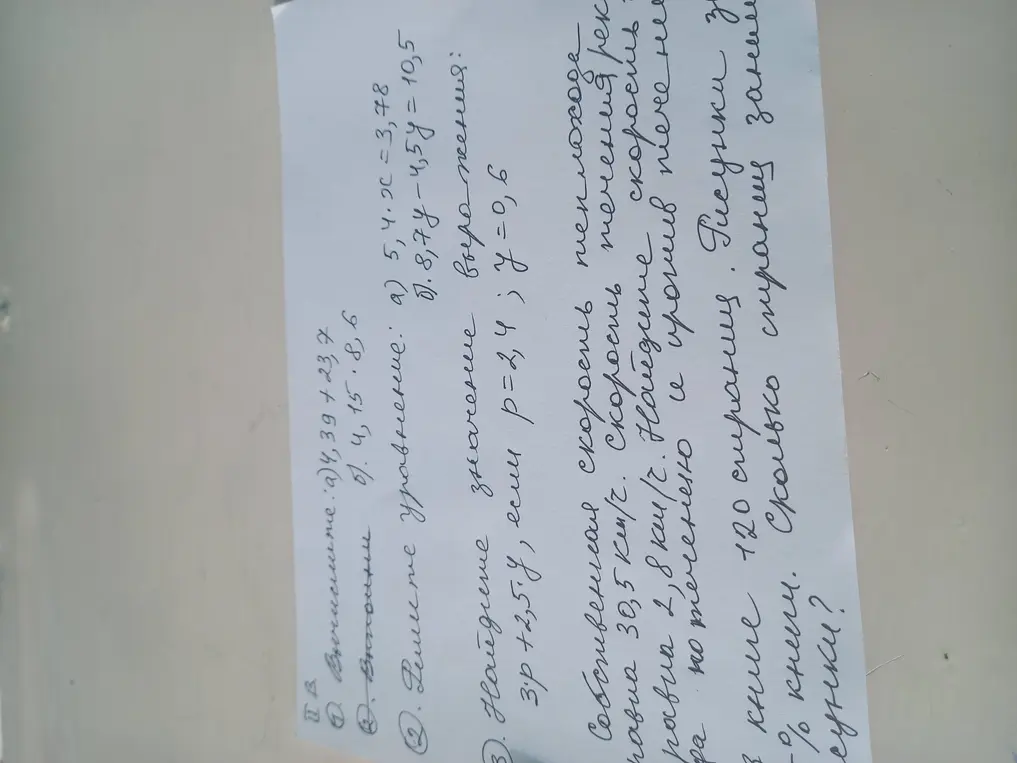 II В
1) Вычислите: а) 4,39 + 23,7
б). 4,15 · 8,6
2). Решите уравнение: а) 5,4 · x = 3,78
б). 8,7y - 4,5y = 10,5
3). Найдите значение выражения:
3·p + 2,5·y, если p = 2,4 ; y = 0,6
Собственная скорость теплохода
равна 30,5 км/ч. Скорость течения рек
равна 2,8 км/ч. Найдите скорость
да по течению и против течени
В книге 120 страниц. Рисунки з
% книги. Сколько страниц заним
сунки?